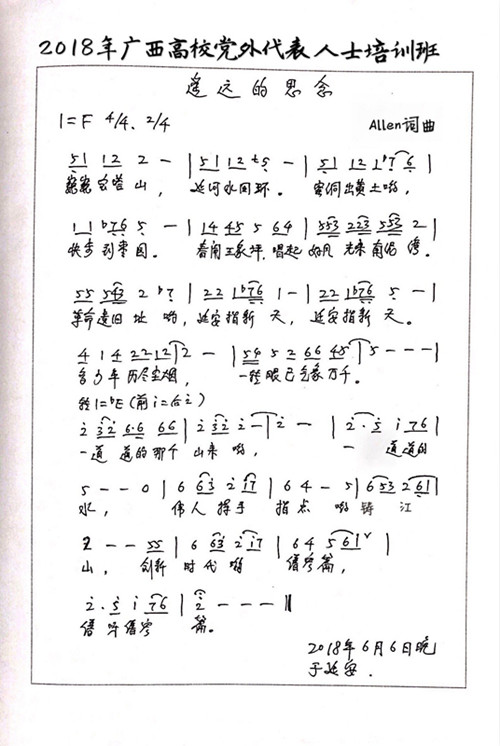 2018年广西高校党外代表人士培训班
遥远的思念
1=F 4/4、2/4
Allen词曲
51 12 2 - | 51 12 5 - | 51 12 1 b7 6 |
巍巍宝塔山, 延河水回环。 窑洞出黄土哟,
11 b76 5 - | 14 45 5 64 | 553 223 553 2 |
快步到枣园。 看闹王家坪,唱起 南泥湾。
55 543 2 b7 | 22 1b76 1 - | 22 1b76 5 - |
革命遗旧址哟,延安指新天,延安指新天。
4 1 4 22 12 | 2 - | 54 5 2 66 45 | 5 - - - |
多少年历尽尘烟, 一转眼已气象万千。
转1=bE(前i=后2)
2 32 6·6 66 | 2 32 2 - | 2 - | 2·5 i 76 |
一道道的那个山来哟, 一道道的
5 - - 0 | 6 63 2 i7 | 6 4 - 5 | 6 53 2 61 |
水, 伟人挥手指点哟 江
2 - - 55 | 6 63 2 i7 | 6 4 5 61 |
山, 创新时代哟 谱写篇,
2·5 i 76 | 2 - - - ||
谱写篇。
2018年6月6日晚
于延安.